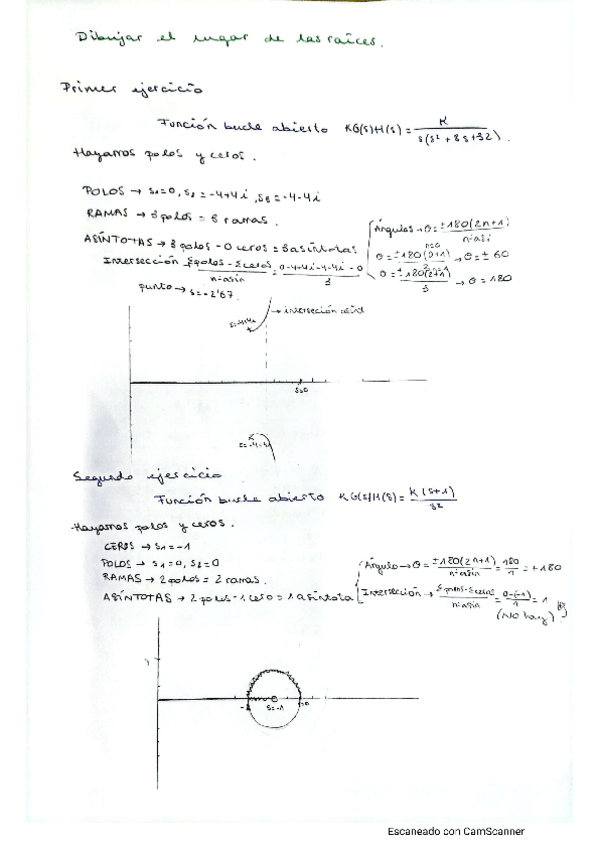 Dibujar el lugar de las raíces.
Primer ejercicio
Función bucle abierto KG(s)H(s) = K / s(s² + 8s + 32).
Hayamos polos y ceros.
POLOS → s₁=0, s₂=-4+4i, s₃=-4-4i
RAMAS → 3 polos = 3 ramas.
ASÍNTOTAS → 3 polos - 0 ceros = 3 asíntotas
Ángulos → θ = ±180(2n+1) / nºasi
n=0
θ = ±180(0+1) / 3 → θ = ± 60
n=1
θ = ±180(2+1) / 3 → θ = 180
Intersección Σpolos - Σceros / nºasin = 0-4+4i-4-4i - 0 / 3
punto → s=-2'67.
s=-4+4i
→ interseción asínt
s=0
s=-4-4i
Segundo ejercicio
Función bucle abierto KG(s)H(s) = K(s+1) / s²
Hayamos polos y ceros.
CEROS → s₁=-1
POLOS → s₁=0, s₂=0
RAMAS → 2 polos = 2 ramas.
ASÍNTOTAS → 2 polos - 1 cero = 1 asíntota
Ángulo → θ = ±180(2n+1) / nºasin = 180 / 1 = +180
Intersección → Σpolos - Σceros / nºasin = 0-(-1) / 1 = 1
(No hay)
s=-1
Escaneado con CamScanner